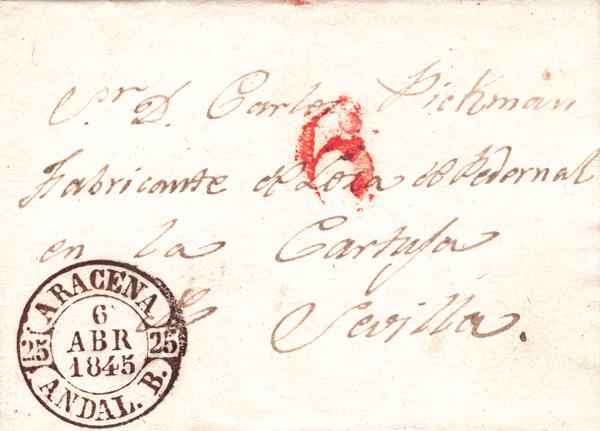 Sr. D. Carlos Pickman
6
Fabricante de Loza de Pedernal
en la Cartuja
de Sevilla.
ARACENA
6
ABR
1845
25 25
ANDAL. B.